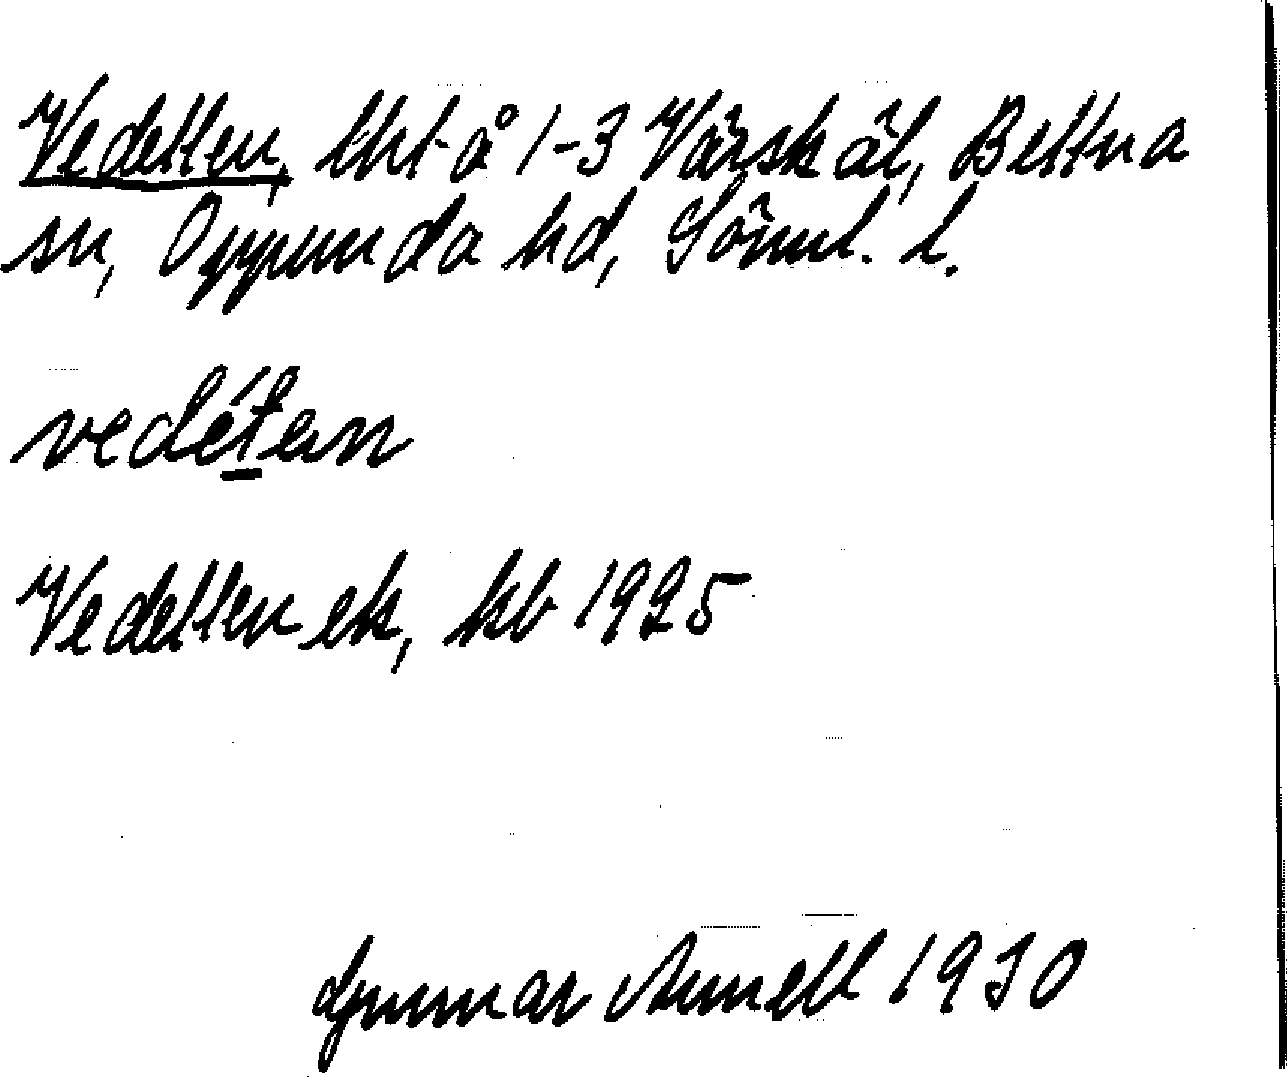 Vedetten, lht å 1-3 Vårskäl, Bettna
sn, Oppunda hd, Söml. l.
vedét̲en
Vedetten ek, kb 1925
Gunnar Arnell 1930